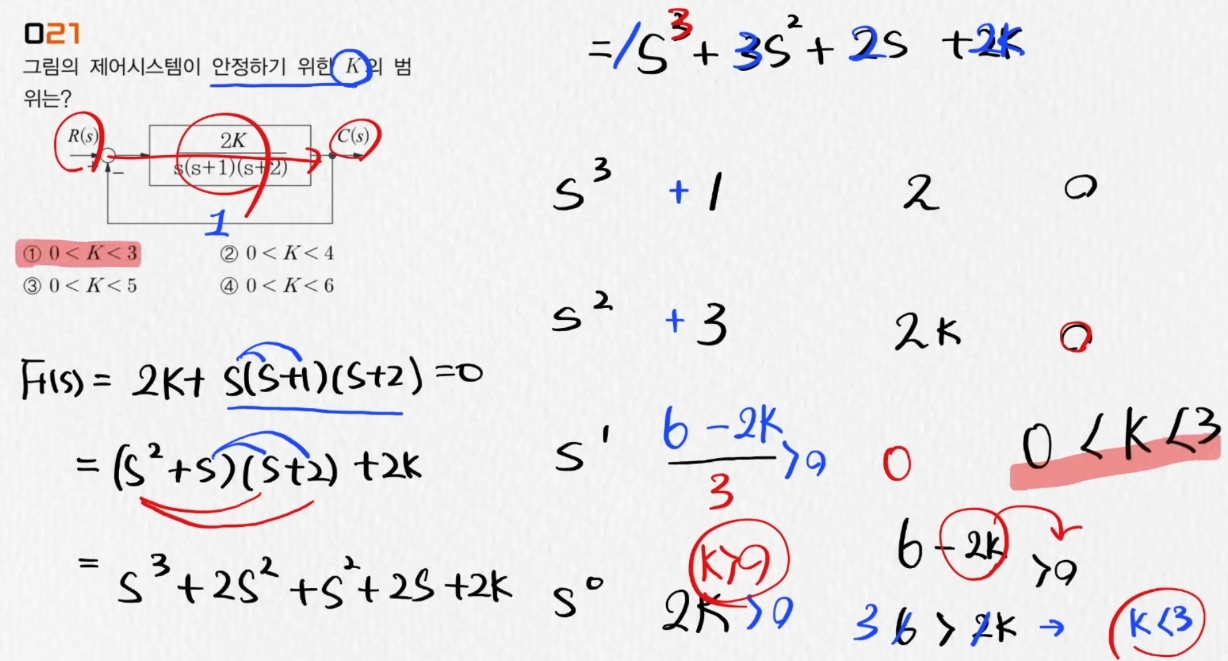 021
그림의 제어시스템이 안정하기 위한 K의 범
위는?
R(s) + − 2K C(s)
s(s+1)(s+2)
1
① 0 < K < 3 ② 0 < K < 4
③ 0 < K < 5 ④ 0 < K < 6
F(s) = 2K + S(S+1)(S+2) = 0
= (S² + S)(S+2) + 2K
= S³ + 2S² + S² + 2S + 2K
= 1S³ + 3S² + 2S + 2K
S³ + 1 2 0
S² + 3 2K 0
S¹ 6 - 2K > 0 0
3
S⁰ 2K > 0
K > 0
0 < K < 3
6 - 2K > 0
3 6 > 2K → K < 3